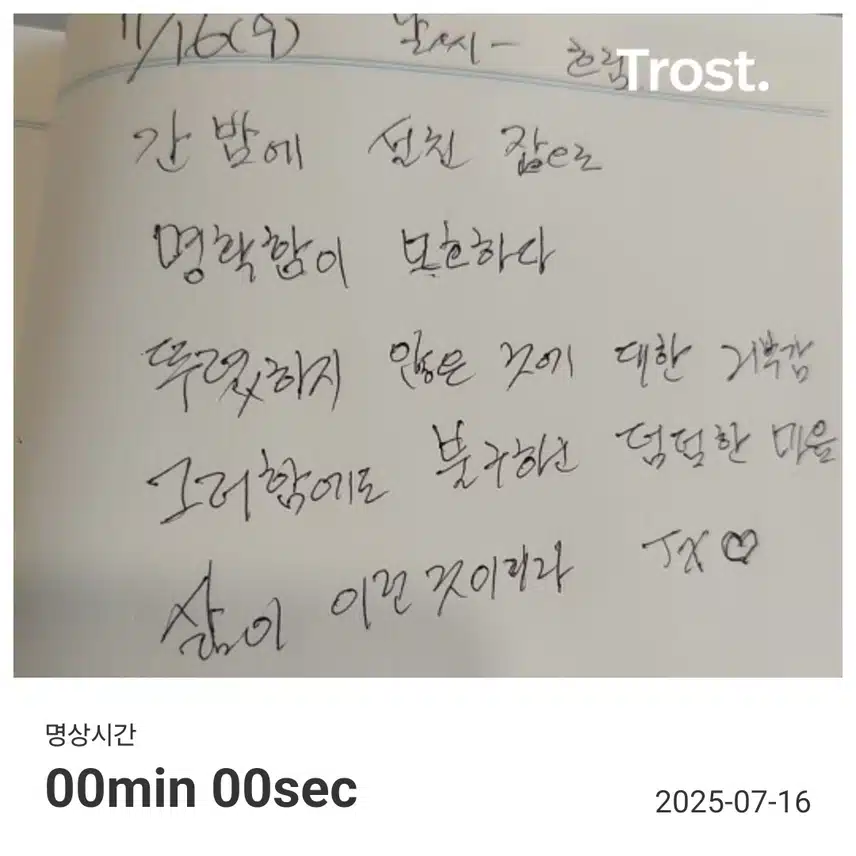 /16(수) 날씨- 흐림
Trost.
간밤에 설친 잠으로
명확함이 모호하다
뚜렷하지 않은 것에 대한 거부감
그러함에도 불구하고 덤덤한 마음
삶이 이런 것이리라 JX♡
명상시간
00min 00sec
2025-07-16